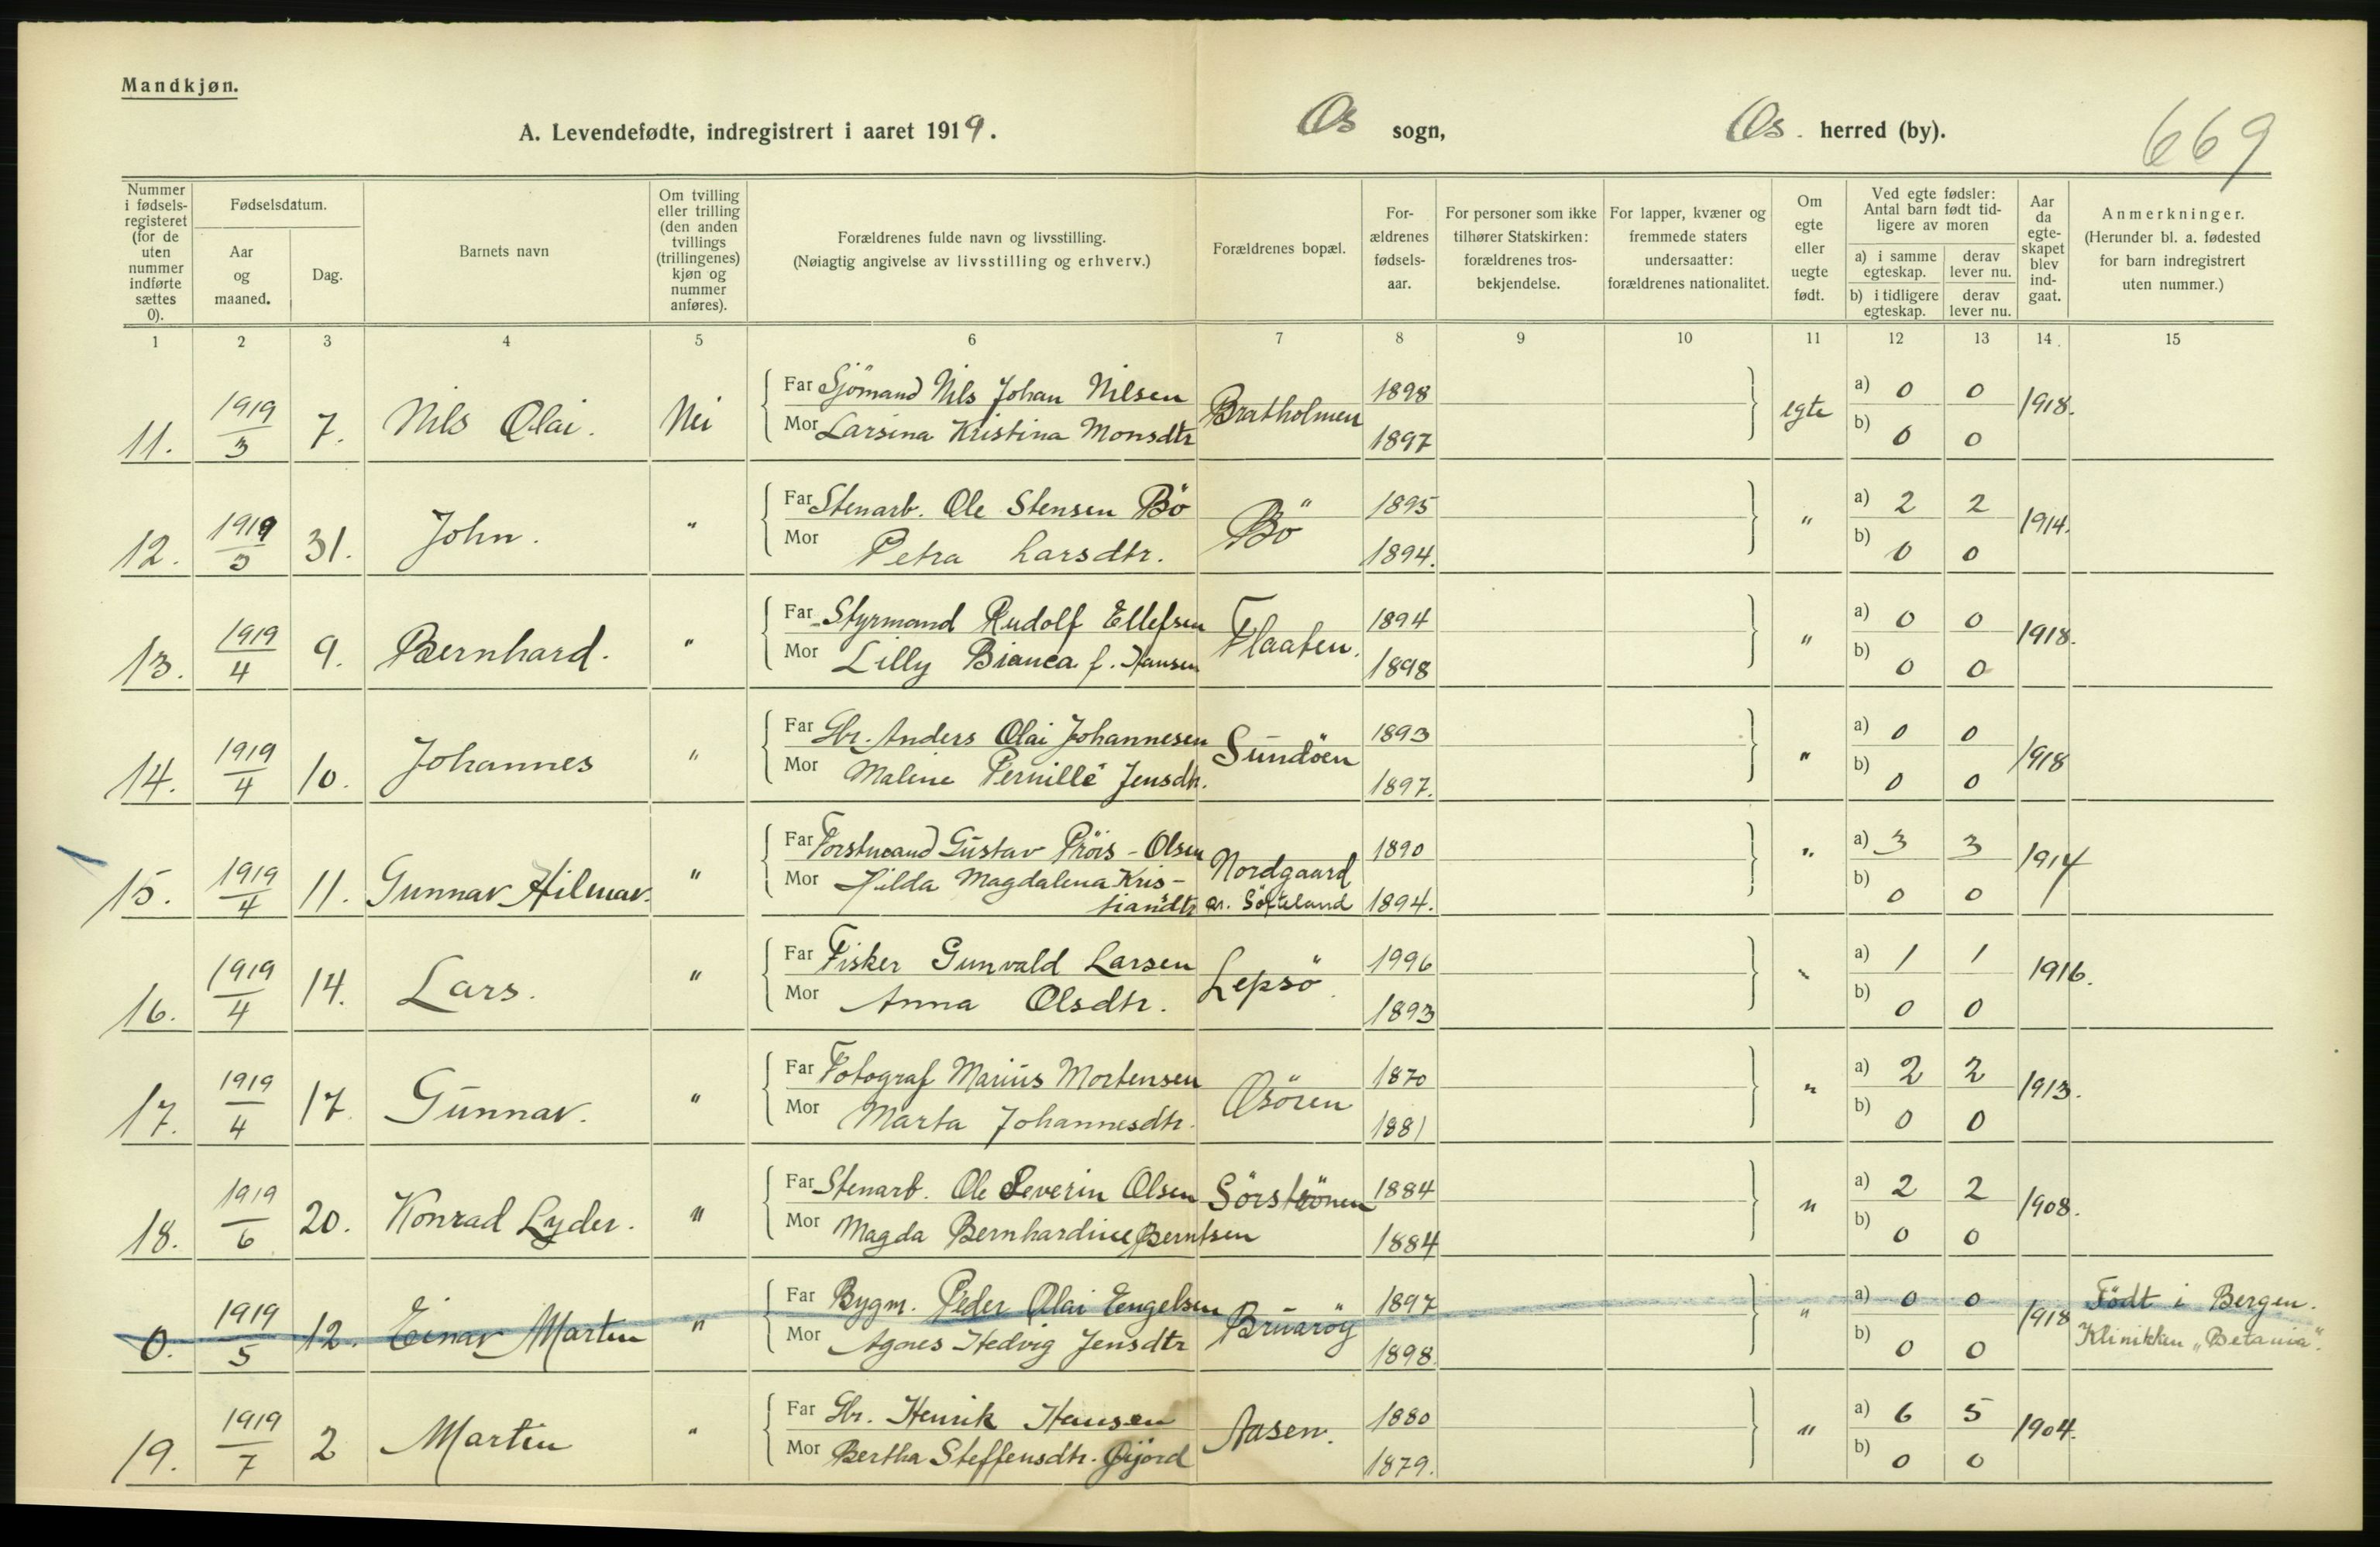 Mandkjøn.
A. Levendefødte, indregistrert i aaret 1919. Os sogn, Os. herred (by). 669
Nummer i fødsels-registeret (for de uten nummer indførte sættes 0).
Fødselsdatum.
Aar og maaned.
Dag.
Barnets navn
Om tvilling eller trilling (den anden tvillings (trillingenes) kjøn og nummer anføres).
Forældrenes fulde navn og livsstilling.
(Nøiagtig angivelse av livsstilling og erhverv.)
Forældrenes bopæl.
For-ældrenes fødsels-aar.
For personer som ikke tilhører Statskirken: forældrenes tros-bekjendelse.
For lapper, kvæner og fremmede staters undersaatter: forældrenes nationalitet.
Om egte eller uegte født.
Ved egte fødsler: Antal barn født tid-ligere av moren
a) i samme egteskap. derav lever nu.
b) i tidligere egteskap. derav lever nu.
Aar da egte-skapet blev ind-gaat.
Anmerkninger.
(Herunder bl. a. fødested for barn indregistrert uten nummer.)
1 2 3 4 5 6 7 8 9 10 11 12 13 14 15
11. 1919/3 7. Nils Olai. Nei Far Sjömand Nils Johan Nilsen Bratholmen 1898 egte a) 0 0 1918.
Mor Larsina Kristina Monsdtr 1897 b) 0 0
12. 1919/3 31. John. " Far Stenarb. Ole Stensen Bö Bö 1895 " a) 2 2 1914.
Mor Petra Larsdtr. 1894. b) 0 0
13. 1919/4 9. Bernhard. " Far Styrmand Rudolf Ellefsen Flaaten. 1894 " a) 0 0 1918.
Mor Lilly Bianca f. Hansen 1898 b) 0 0
14. 1919/4 10. Johannes " Far Gbr. Anders Olai Johannesen Sundöen 1893 " a) 0 0 1918
Mor Maline Pernille Jensdtr. 1897. b) 0 0
15. 1919/4 11. Gunnar Hilmar. " Far Forstmand Gustav Pröis-Olsen Nordgaard 1890 " a) 3 3 1914
Mor Hilda Magdalena Kris-
tiansdtr Söfteland 1894. b) 0 0
16. 1919/4 14. Lars. " Far Fisker Gunvald Larsen Lepsö. 1996 " a) 1 1 1916.
Mor Anna Olsdtr. 1893 b) 0 0
17. 1919/4 17. Gunnar. " Far Fotograf Marius Mortensen Osören 1870 " a) 2 2 1913.
Mor Marta Johannesdtr. 1881 b) 0 0
18. 1919/6 20. Konrad Lyder. " Far Stenarb. Ole Severin Olsen Sörströnen 1884 " a) 2 2 1908.
Mor Magda Bernhardine Berntsen 1884 b) 0 0
0. 1919/5 12. Einar Martin " Far Bygm. Peder Olai Engelsen Bruaröy 1897 " a) 0 0 1918 Födt i Bergen.
Mor Agnes Hedvig Jensdtr 1898. b) 0 0 Klinikken „Betania".
19. 1919/7 2 Martin " Far Gbr. Henrik Hansen Aasen. 1880 " a) 6 5 1904.
Mor Bertha Steffensdtr. Gjjörd 1879. b) 0 0